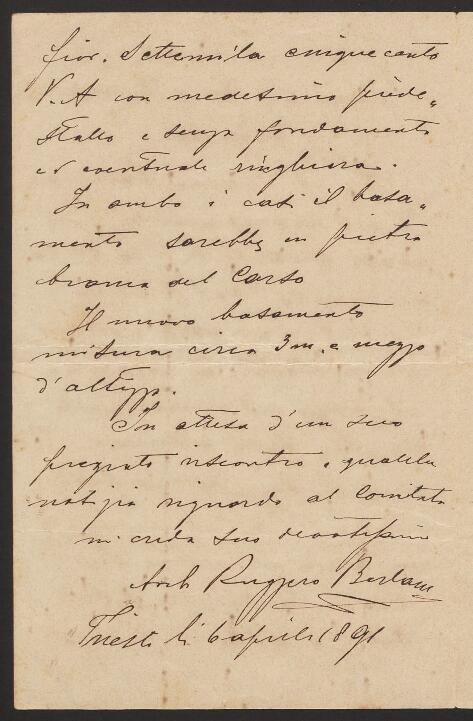 fior. Settemila cinquecento
V.A con medesimo piede„
stallo e senza fondamento
ed eventuale ringhiera.
In ambo i casi il basa„
mento sarebbe in pietra
bianca del Carso
Il nuovo basamento
misura circa 3 m. e mezzo
d'altezz.
In attesa d'un suo
pregiato riscontro, qualche
notizia riguardo al Comitato
mi creda suo devotissimo
Arch Ruggero Berlam
Trieste li 6 aprile 1891